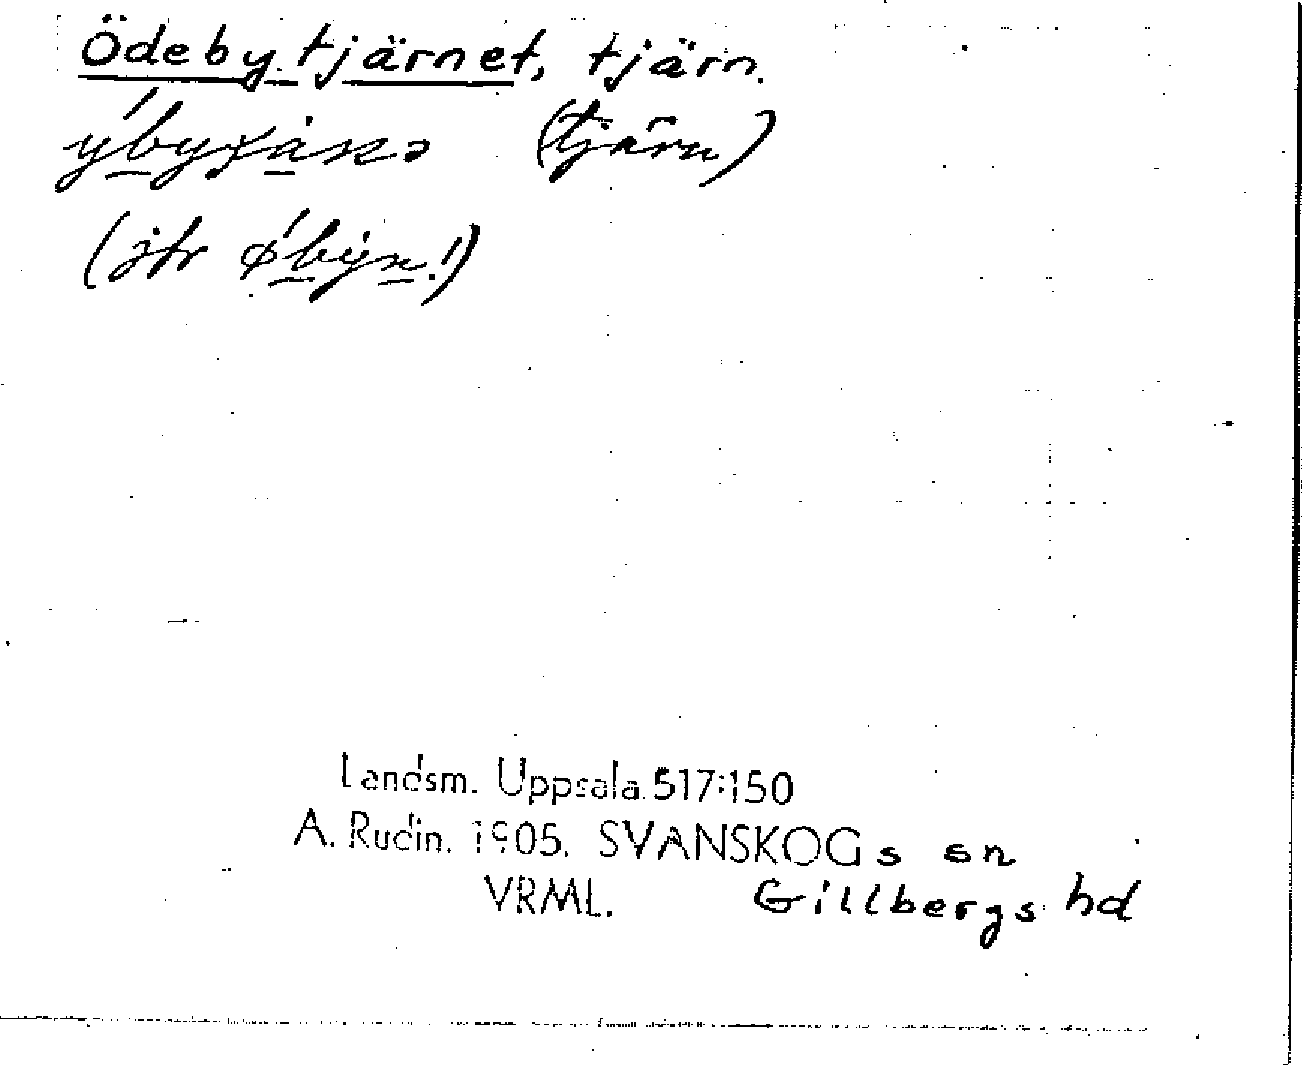 Ödebytjärnet, tjärn.
(tjärn)
(jfr øbyn!)
Landsm. Uppsala 517:150
A. Rudin. 1905. SVANSKOGs sn
VRML. Gillbergs hd